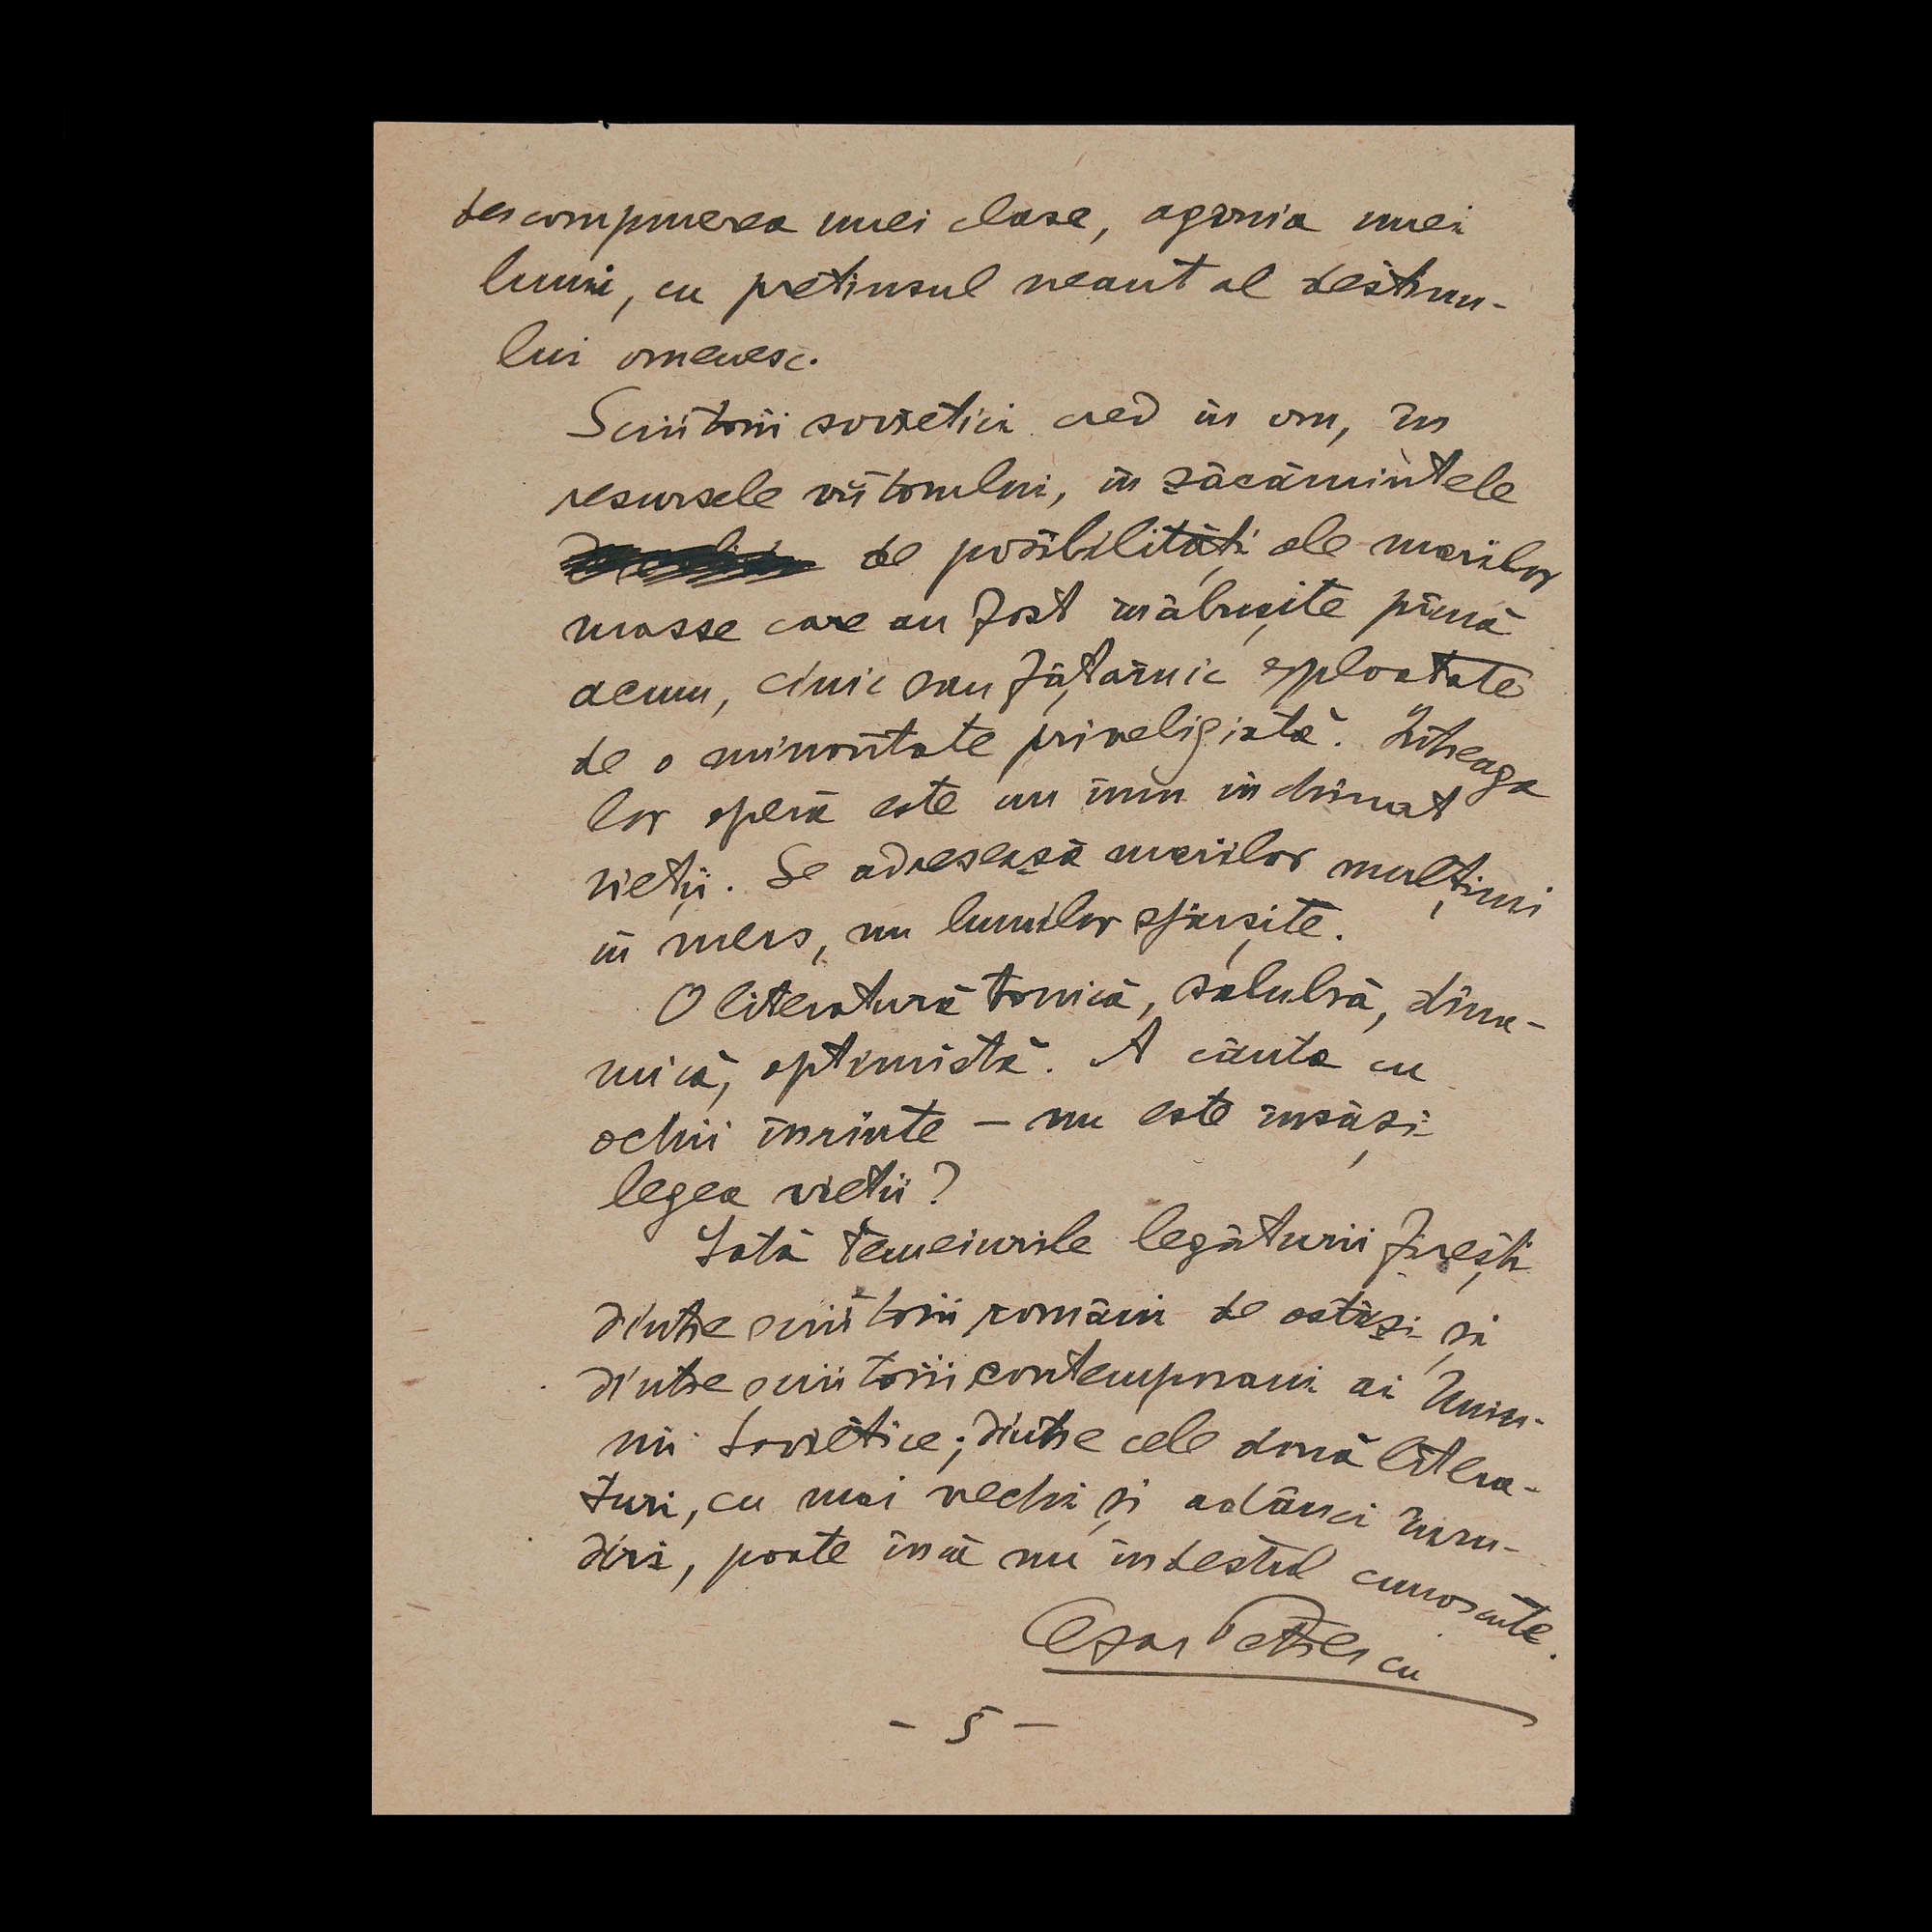 descompunerea unei clase, agonia unei
lumi, cu pretinsul neant al destinu-
lui omenesc.
Scriitorii sovietici cred în om, în
resursele viitorului, în zăcămintele
de posibilități ale marilor
masse care au fost înăbușite pînă
acum, cinic sau fățarnic exploatate
de o minoritate priveligiată. Întreaga
lor operă este un imn închinat
vieții. Se adresează marilor mulțimi
în mers, nu lumilor sfârșite.
O literatură tonică, salubră, dina-
mică, optimistă. A căuta cu
ochii înainte – nu este însăși
legea vieții?
Iată temeiurile legăturii firești
dintre scriitorii români de astăzi și
dintre scriitorii contemporani ai Uniu-
nii Sovietice; dintre cele două litera-
turi, cu mai vechi și adânci înru-
diri, poate încă nu îndestul cunoscute.
Cezar Petrescu
- 5 -